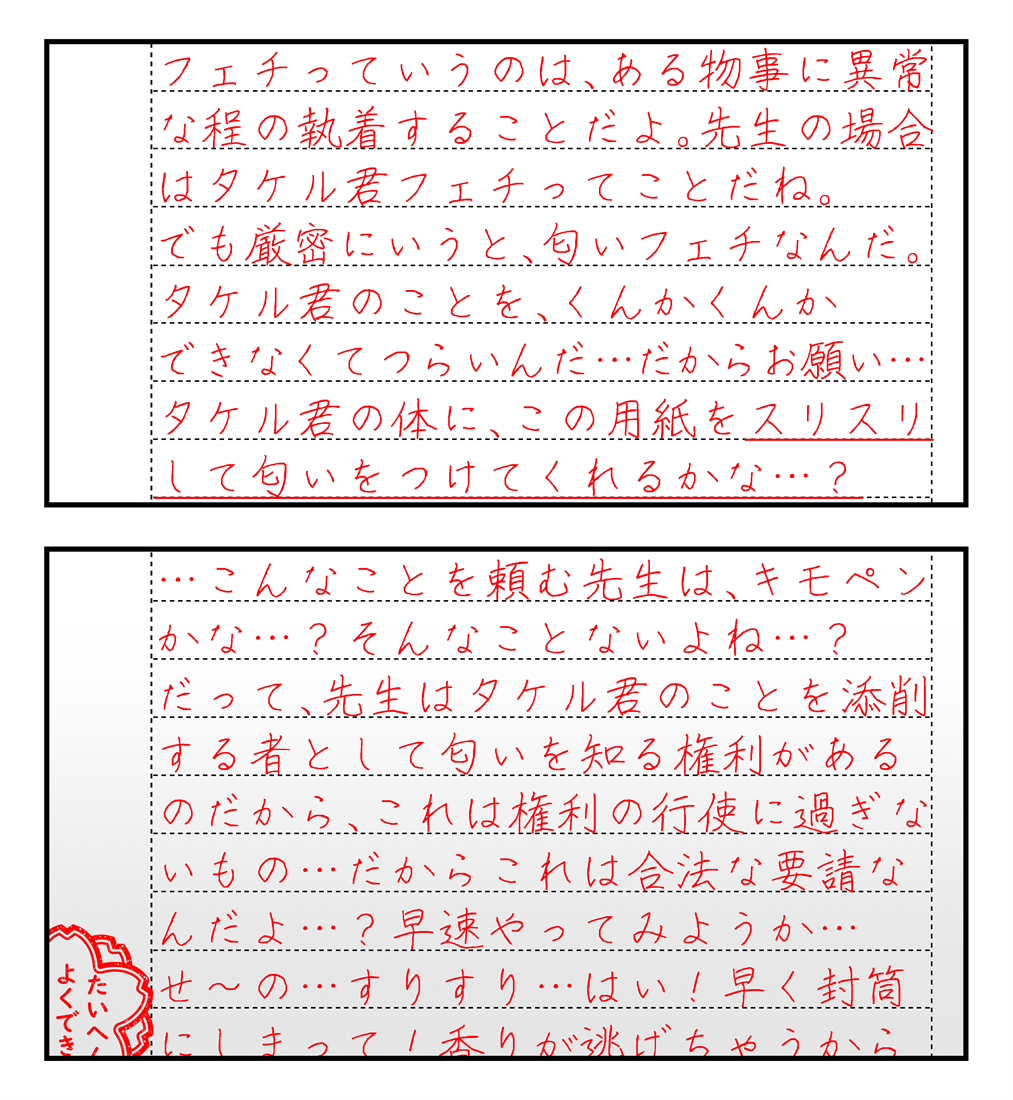 フェチっていうのは、ある物事に異常
な程の執着することだよ。先生の場合
はタケル君フェチってことだね。
でも厳密にいうと、匂いフェチなんだ。
タケル君のことを、くんかくんか
できなくてつらいんだ…だからお願い…
タケル君の体に、この用紙をスリスリ
して匂いをつけてくれるかな…？
…こんなことを頼む先生は、キモペン
かな…？そんなことないよね…？
だって、先生はタケル君のことを添削
する者として匂いを知る権利がある
のだから、これは権利の行使に過ぎな
いもの…だからこれは合法な要請な
んだよ…？早速やってみようか…
せ～の…すりすり…はい！早く封筒
にしまって！香りが逃げちゃうから
たいへん
よくでき